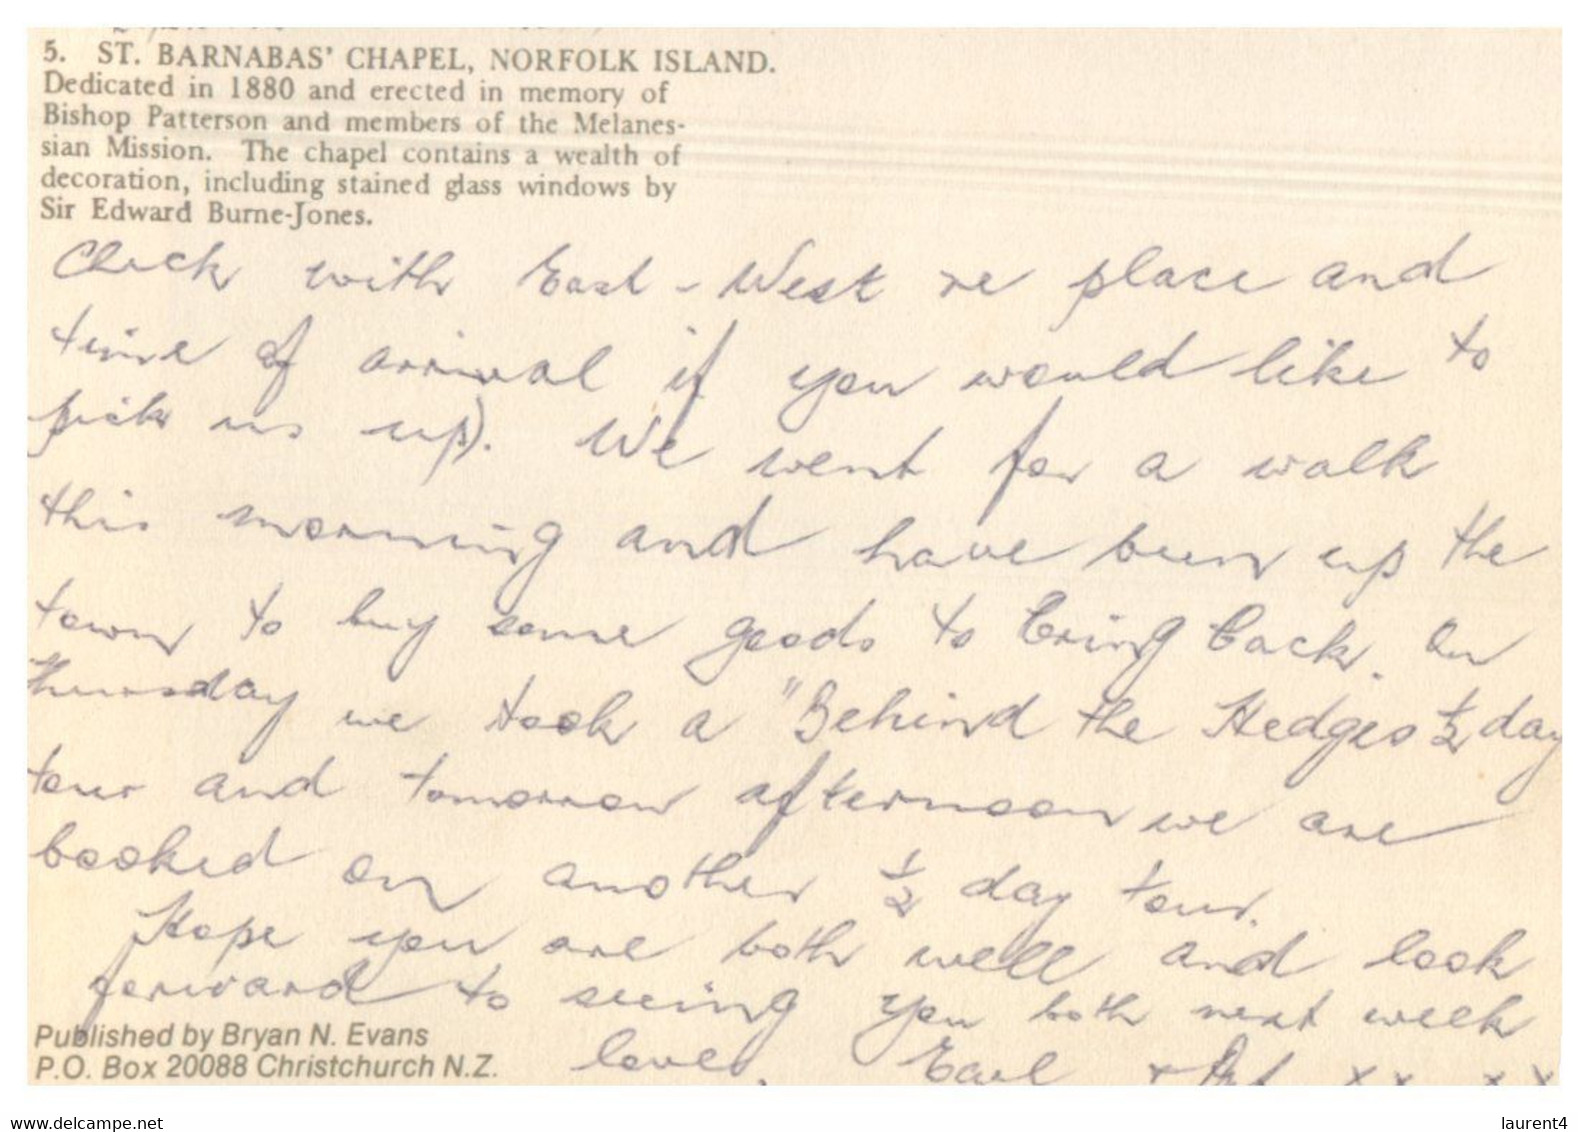 5. ST. BARNABAS' CHAPEL, NORFOLK ISLAND.
Dedicated in 1880 and erected in memory of
Bishop Patterson and members of the Melanes-
sian Mission. The chapel contains a wealth of
decoration, including stained glass windows by
Sir Edward Burne-Jones.
Check with East-West re place and
time of arrival if you would like to
pick us up). We went for a walk
this morning and have been up the
town to buy some goods to bring back. On
Thursday we took a "Behind the Hedges ½ day
tour and tomorrow afternoon we are
booked on another ½ day tour.
Hope you are both well and look
forward to seeing you both next week
love, Earl + xx xx
Published by Bryan N. Evans
P.O. Box 20088 Christchurch N.Z.
www.delcampe.net
laurent4